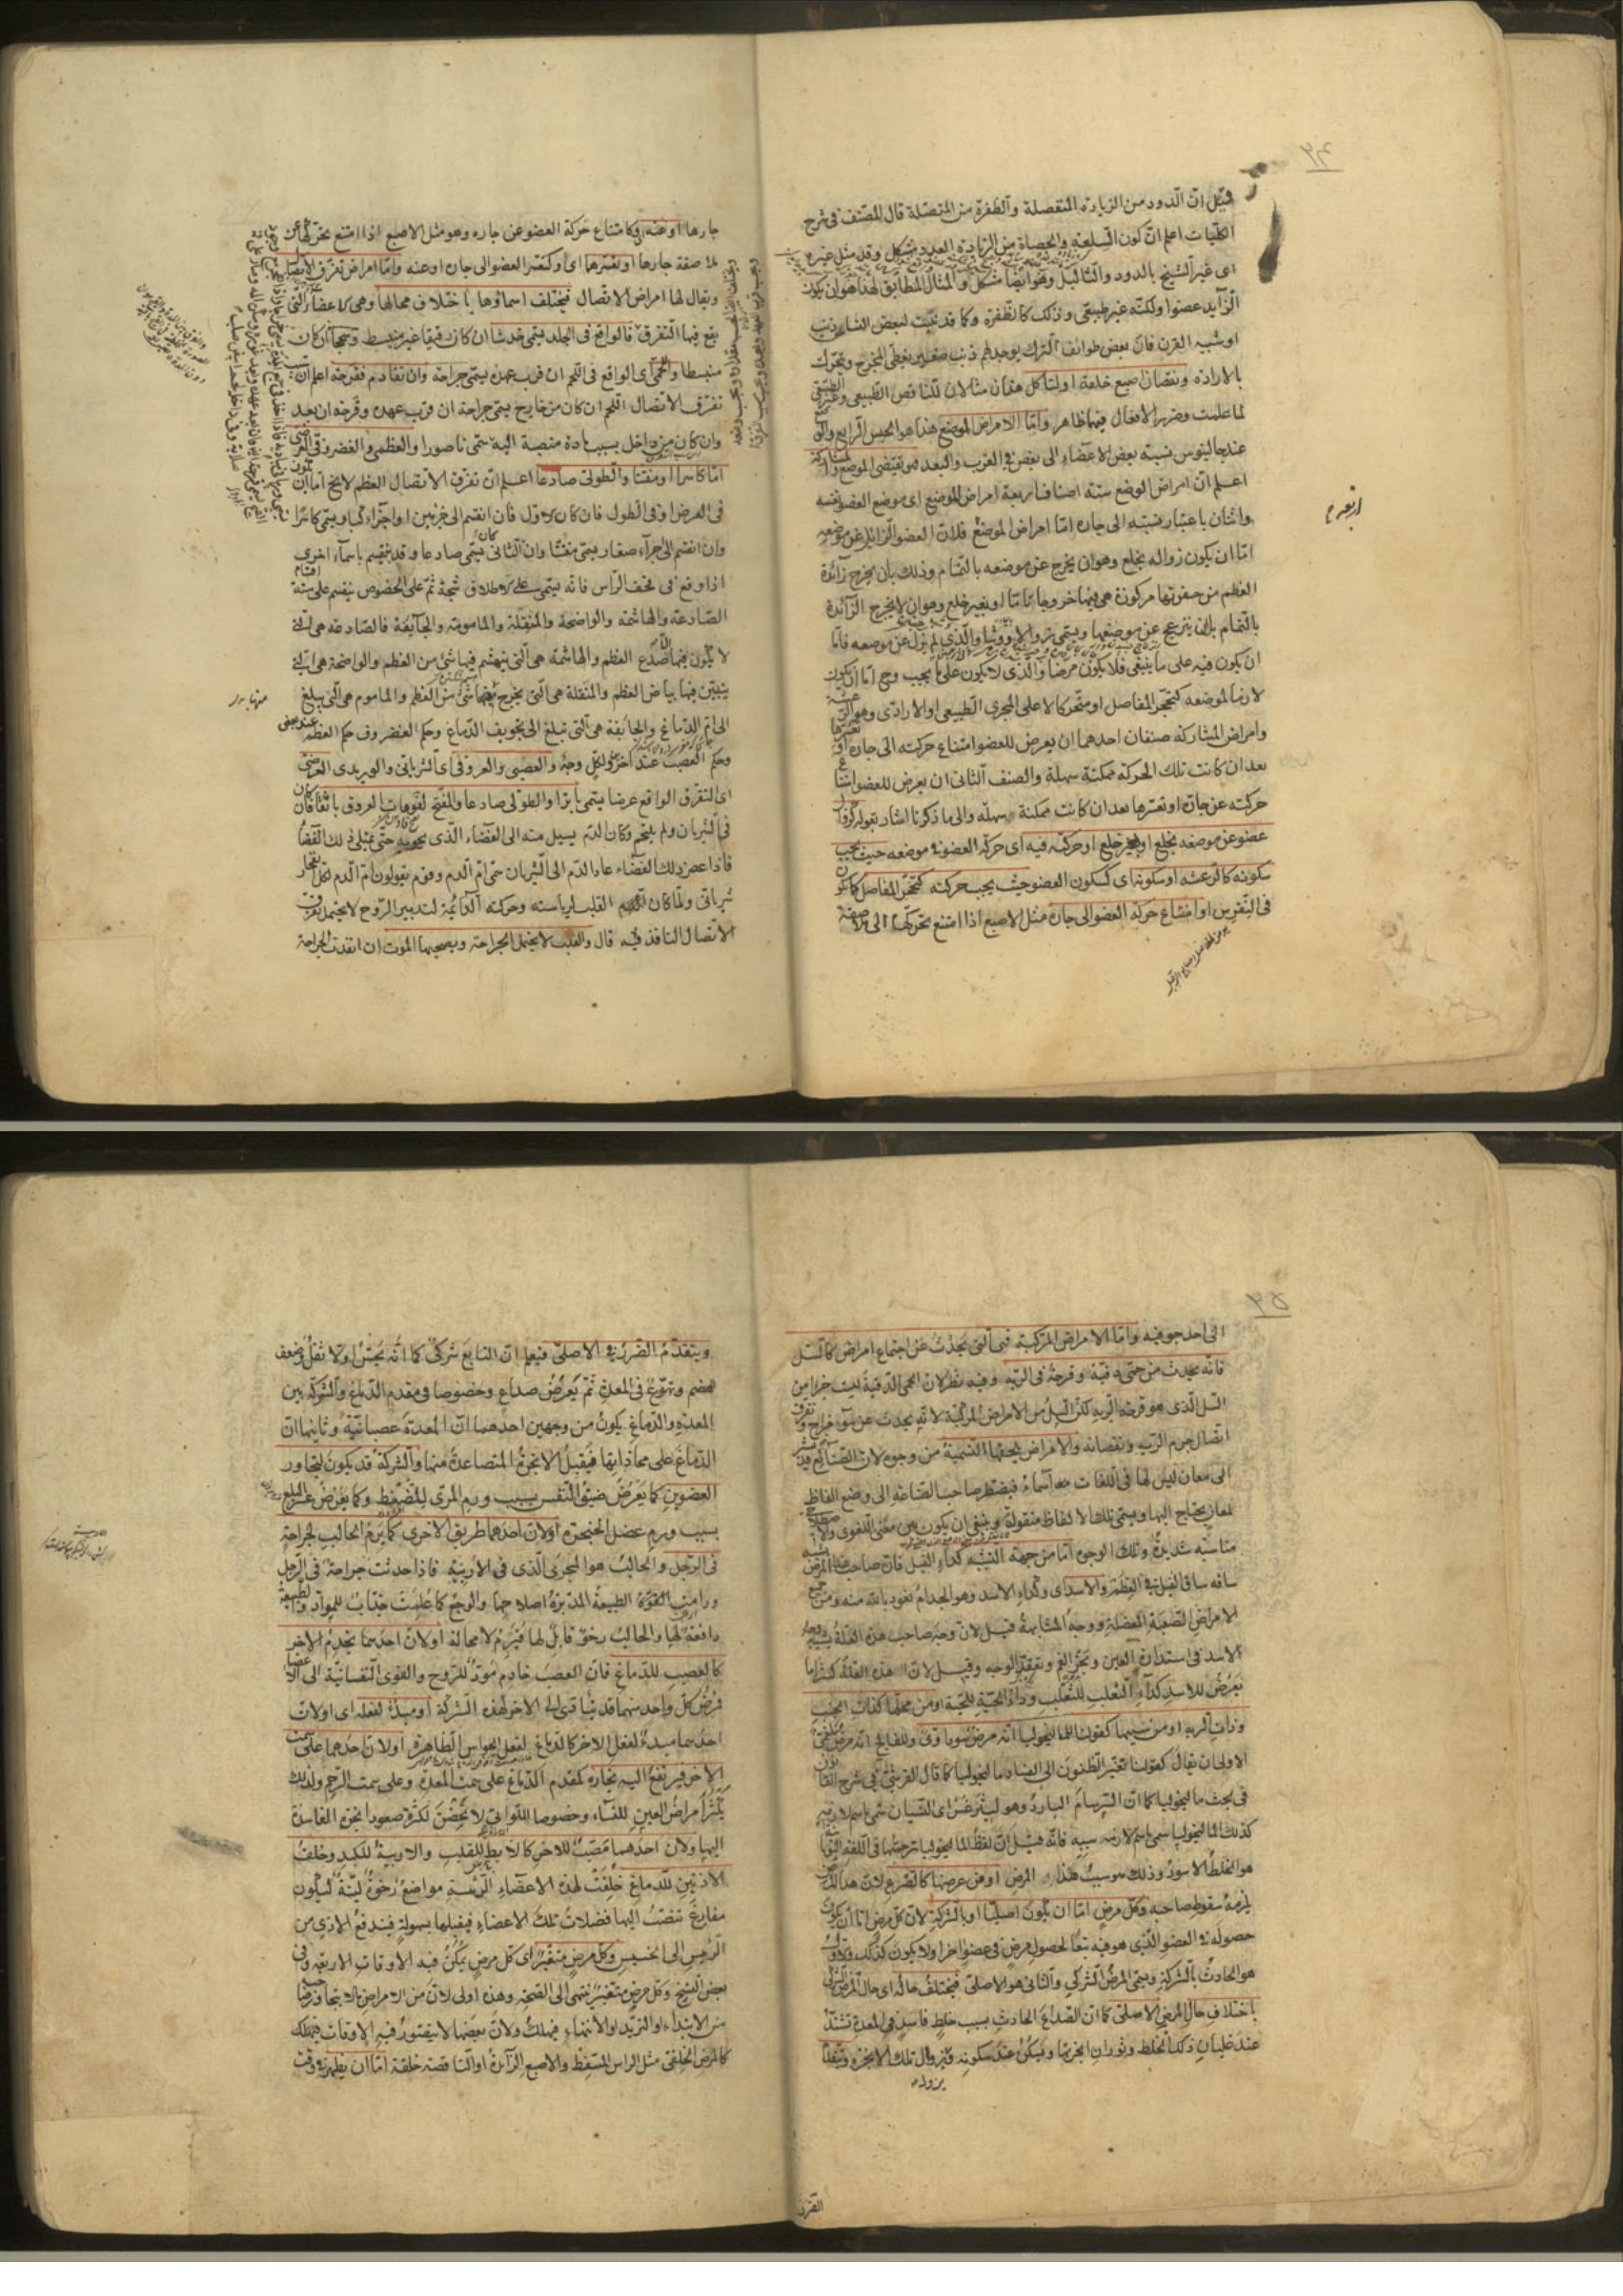 ۲۴
قيل ان الدود من الزيادة المنفصلة والظفرة من المتصلة قال المصنف فى شرح
الكليات اعلم ان كون السلعة والحصاة من الزيادة العدد مشكل وقد مثل غيره
اى غير الشيخ بالدود والثآليل وهو ايضا مشكل والمثال المطابق لهذا هو ان يكون
الزايد عضوا ولكنه غير طبيعى وذلك كالظفرة وكما قد نبت لبعض الناس ذنب
او شبيه القرن فان بعض طوائف الترك يوجد لهم ذنب صغير يغطى المخرج ويتحرك
بالارادة ونقصان اصبع خلقة او لتاكل هذان مثالان للناقص الطبيعى وغير الطبيعى
لما علمت وضرر الافعال فيهما ظاهر واما الامراض الوضع هذا هو الجنس الرابع والوضع
عند جالينوس نسبة بعض الاعضاء الى بعض فى القرب والبعد فهو يقتضى الموضع والمشاركة
اعلم ان امراض الوضع ستة اصناف اربعة امراض الموضع اى موضع العضو نفسه
واثنان باعتبار نسبته الى جاره اما امراض الموضع فلان العضو الزائل عن موضعه
اما ان يكون زواله بخلع وهو ان يخرج عن موضعه بالتمام وذلك بان يخرج زائدة
العظم من حفرتها مركوزة هى فيها خروجا تاما او بغير خلع وهو ان لا يخرج الزائدة
بالتمام بل ان ينزعج عن موضعها ويسمى زوالا ووثيا والذى لم يزل عن موضعه فاما
ان يكون فيه على ما ينبغى فلا يكون مرضا والذى لا يكون على ما يجب وح اما ان يكون
لازما لموضعه كتحجر المفاصل او متحركا لا على المجرى الطبيعى او الارادى وهو الرعشة
وامراض المشاركة صنفان احدهما ان يعرض للعضو امتناع حركته الى جاره او تعسرها
بعد ان كانت تلك الحركة ممكنة سهلة والصنف الثانى ان يعرض للعضو امتناع
حركته عن جاره او تعسرها بعد ان كانت ممكنة سهلة والى ما ذكرنا اشار بقوله كزوال
عضو عن موضعه بخلع او بغير خلع او حركته فيه اى حركة العضو فى موضعه حيث يجب
سكونه كالرعشة او سكونه اى كسكون العضو حيث يجب حركته كتحجر المفاصل كما يكون
فى النقرس او امتناع حركة العضو الى جاره مثل الاصبع اذا امتنع تحركها الى ملاصقة
جارها او عنه اى وكامتناع حركة العضو عن جاره وهو مثل الاصبع اذا امتنع تحركها عن
ملاصقة جارها او تعسرها اى او كتعسر العضو الى جاره او عنه واما امراض تفرق الاتصال
ويقال لها امراض الاتصال فيختلف اسماؤها باختلاف محالها وهى الاعضاء التى
يقع فيها التفرق فالواقع فى الجلد يسمى خدشا ان كان دقيقا غير منبسط وسحجا ان كان
منبسطا واللحمى اى الواقع فى اللحم ان قرب عهده يسمى جراحة وان تقادم فقرحة اعلم ان
تفرق الاتصال اللحم ان كان من خارج يسمى جراحة ان قرب عهده وقرحة ان بعد
وان كان من داخل بسبب مادة منصبة اليه تسمى ناصورا والعظمى والغضروفى العرضى
اما كاسرا او مفتتا والطولى صادعا اعلم ان تفرق الاتصال العظم لا يخ اما ان يكون
فى العرض او فى الطول فان كان الاول فان انقسم الى جزئين او اجزاء كبار يسمى كاسرا
وان انقسم الى اجزاء صغار يسمى مفتتا وان كان الثانى يسمى صادعا وقد ينقسم باسماء اخرى
اذا وقع فى قحف الراس فانه يسمى على الاطلاق شجة ثم على الخصوص ينقسم على ستة اقسام
الصادعة والهاشمة والواضحة والمنقلة والمامومة والجائفة فالصادعة هى التى
لا يكون فيها الا صدع العظم والهاشمة هى التى ينهشم فيها شئ من العظم والواضحة هى التى
يتبين فيها بياض العظم والمنقلة هى التى يخرج منها شئ من العظم والماموم هى التى يبلغ
الى ام الدماغ والجائفة هى التى تبلغ الى تجويف الدماغ وحكم الغضروف حكم العظم عند بعض
وحكم العصب عند آخر ولكل وجه والعصبى والعروقى اى الشريانى والوريدى العرضى
اى التفرق الواقع عرضا يسمى باترا والطولى صادعا والمفتح لفوهات العروق باثقا فان كان
فى الشريان ولم يلتحم وكان الدم يسيل منه الى الفضاء الذى يحويه حتى يمتلى ذلك الفضاء
فاذا عصر ذلك الفضاء عاد الدم الى الشريان سمى ام الدم وقوم يقولون ام الدم لكل انفجار
شريانى ولما كان القلب لرياسته وحركته الدائمة لتدبير الروح لا يحتمل تفرق
الاتصال النافذ فيه قال والقلب لا يحتمل الجراحة ويصحبها الموت ان انفذت الجراحة
۲۵
الى احد جوفيه واما الامراض المركبة فهى التى يحدث عن اجتماع امراض كالسل
فانه يحدث من حمى دقية وقرحة فى الرئة وفيه نظر لان الحمى الدقية ليست جزءا من
السل الذى هو قرحة الرئة لكن السل من الامراض المركبة لانه يحدث عن سوء مزاج وتفرق
اتصال جرم الرئة ونقصانه والامراض يلحقها التسمية من وجوه لان الصنائع قد تشير
الى معان ليس لها فى اللغات اسماء فيضطر صاحب الصناعة الى وضع الفاظ
لمعان يحتاج اليها ويسمى تلك الالفاظ منقولة وينبغى ان يكون بين معنى اللغوى والاصطلاحى
مناسبة شديدة وتلك الوجوه اما من جهة التشبيه كداء الفيل فان صاحب هذا المرض يشبه
ساقه ساق الفيل فى العظم والاسد اى وكداء الاسد وهو الجذام نعوذ بالله منه ومن جميع
الامراض الصعبة المعضلة ووجه المشابهة قيل لان وجه صاحب هذه العلة يشبه وجه
الاسد فى استدارة العين وتعقد الوجه وقيل لان هذه العلة كثيرا ما
يعرض للاسد كداء الثعلب للثعلب وداء الحية للحية او من محلها كذات الجنب
وذات الرية او من سببها كقولنا الماليخوليا انه مرض سوداوى وللفالج انه مرض بلغمى
الاولى ان يقال كقولنا تغير الظنون الى الفساد ماليخوليا كما قال القرشى فى شرح القانون
فى بحث ماليخوليا كما ان السرسام البارد وهو ليثرغس اى النسيان سمى باسم لازمه
كذلك الماليخوليا سمى باسم لازمه سببه فانه قيل ان لفظ الماليخوليا ترجمتها فى اللغة اليونانية
هو الخلط الاسود وذلك هو سبب هذا المرض او من عرضها كالصرع لان هذا المرض
يلزمه سقوط صاحبه وكل مرض اما ان يكون اصليا او بالشركة لان كل مرض اما ان يكون
حصوله فى العضو الذى هو فيه تبعا لحصول مرض فى عضو اخر او لا يكون كذلك والاول
هو الحادث بالشركة ويسمى المرض الشركى والثانى هو الاصلى فيختلف حاله اى حال المرض الشركى
باختلاف حال المرض الاصلى كما ان الصداع الحادث بسبب خلط فاسد فى المعدة تشتد
عند غليان ذلك الخلط وثوران ابخرتها ويسكن عند سكونه فيزول تلك الابخرة ويتقدم
ويتقدم الضرر فى الاصلى فيعلم ان التابع شركى كما انه يحس اولا ثقل وضعف
هضم وتهوع فى المعدة ثم يعرض صداع وخصوصا فى مقدم الدماغ والشركة بين
المعدة والدماغ يكون من وجهين احدهما ان المعدة عصبانية وثانيهما ان
الدماغ على محاذاتها فيقبل الابخرة المتصاعدة منها والشركة قد يكون لتجاور
العضوين كما يعرض ضيق النفس بسبب ورم المرى ليضغط وكما يعرض عسر البلع
بسبب ورم عضل الحنجرة او لان احدهما طريق الاخرى كما يرم الحالب لجراحة
فى الرجل والحالب هو المجرى الذى فى الاربية فاذا حدثت جراحة فى الرجل
ورامت القوة الطبيعة المدبرة اصلاحها والوجع كما علمت جذاب للمواد والطبيعة
دافعة لها والحالب رخو قابل لها فيرم لا محالة او لان احدهما يخدم الاخر
كالعصب للدماغ فان العصب خادم مؤد للروح والقوى النفسانية الى الاعضاء
فمرض كل واحد منهما قد يتادى الى الاخر لهذه الشركة او مبدأ لفعله اى او لان
احدهما مبدء لفعل الاخر كالدماغ لفعل الحواس الظاهرة او لان احدهما على سمت
الاخر فيرتفع اليه بخاره كمقدم الدماغ على سمت المعدة وعلى سمت الرحم ولذلك
يكثر امراض العين للنساء وخصوصا اللواتى لا تحضن لكثرة صعود ابخرة الفاسدة
اليها ولان احدهما مصب للاخر كالابط للقلب والاربية للكبد وخلف
الاذنين للدماغ خلقت لهذه الاعضاء الرئيسة مواضع رخوة لينة ليكون
مفارغ تنصب اليها فضلات تلك الاعضاء فيقبلها بسهولة فيندفع الاذى من
الرئيس الى الخسيس وكل مرض متغير اى كل مرض يمكن فيه الاوقات الاربعة وفى
بعض النسخ وكل مرض متغير ينتهى الى الصحة وهذه اولى لان من الامراض ما لا يتجاوز صاحبها
من الابتداء او التزيد او الانتهاء فيهلك ولان بعضها لا يتصور فيه الاوقات فيهلك
كالمرض الخلقى مثل الراس المسفط والاصبع الزائدة او الناقصة خلقة اما ان يظهر فى وقت